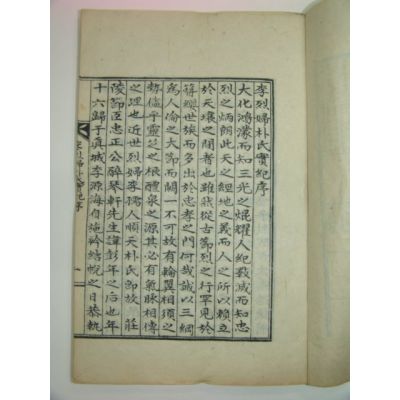 李烈婦朴氏實紀序
大化鴻濛而知三光之焜耀人紀斁滅而知忠
烈之炳朗此天之經地之義而人之所以賴立
於天壤之間者也雖我從古節烈之行罕見於
簡編世而多出於忠孝之門何哉誠以三綱
爲人倫之大節而闕一不可故有輪翼相須之
勢恤乎靈芝之根醴泉之源其必有氣脉相傳
之理也近世李烈婦孺人順天朴氏即故 莊
陵節臣忠正公醉琴軒先生諱彭年之后也年
十六歸于眞城李源海自施衿結帨之日恭執
李烈婦朴氏實紀序 一